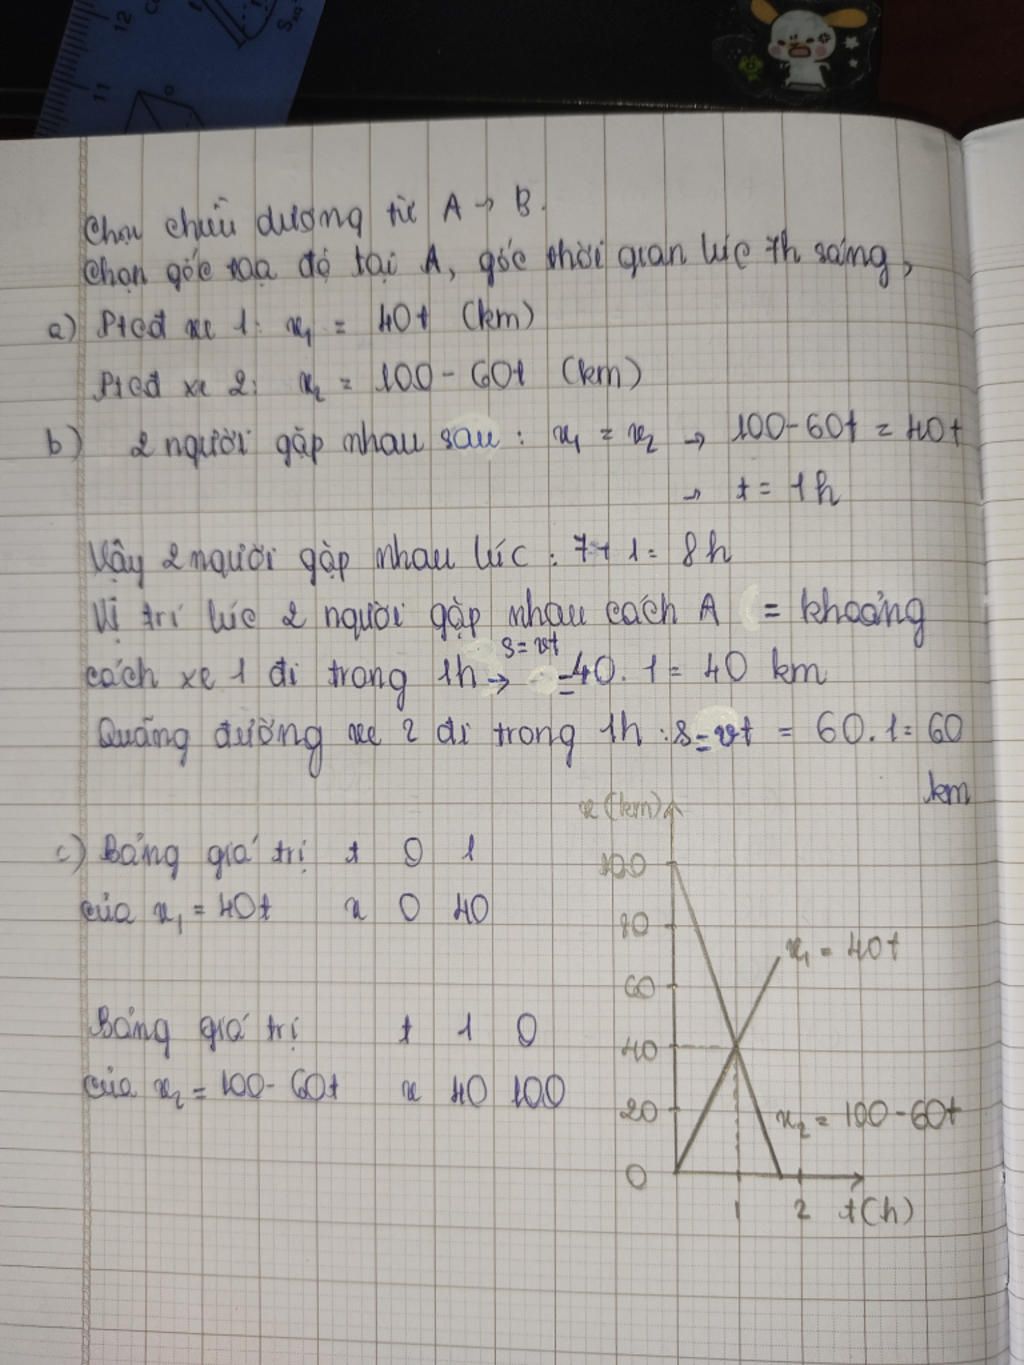 12
11
Chọn chiều dương từ A → B.
Chọn gốc toạ độ tại A, gốc thời gian lúc 7h sáng,
a) Ptcđ xe 1: x₁ = 40t (km)
Ptcđ xe 2: x₂ = 100 - 60t (km)
b) 2 người gặp nhau sau : x₁ = x₂ → 100 - 60t = 40t
→ t = 1h
Vậy 2 người gặp nhau lúc : 7 + 1 = 8h
Vị trí lúc 2 người gặp nhau cách A = khoảng
s = vt
cách xe 1 đi trong 1h → = 40. 1 = 40 km
Quãng đường xe 2 đi trong 1h : s = vt = 60. 1 = 60
km
c) Bảng giá trị t 0 1
của x₁ = 40t x 0 40
Bảng giá trị t 1 0
của x₂ = 100 - 60t x 40 100
x (km)
100
80
x₁ = 40t
60
40
20
x₂ = 100 - 60t
0
1 2 t(h)